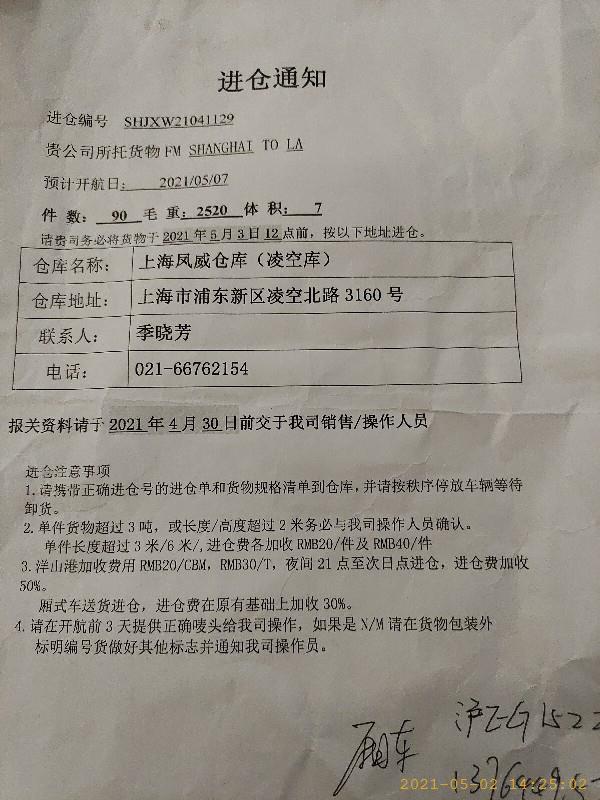 进仓通知
进仓编号 SHJXW21041129
贵公司所托货物FM SHANGHAI TO LA
预计开航日: 2021/05/07
件 数: 90 毛 重: 2520 体 积: 7
请贵司务必将货物于 2021 年 5 月 3 日 12 点前，按以下地址进仓。
仓库名称: 上海凤威仓库（凌空库）
仓库地址: 上海市浦东新区凌空北路 3160 号
联系人: 季晓芳
电话: 021-66762154
报关资料请于 2021 年 4 月 30 日前交于我司销售/操作人员
进仓注意事项
1.请携带正确进仓号的进仓单和货物规格清单到仓库，并请按秩序停放车辆等待
卸货。
2.单件货物超过 3 吨，或长度/高度超过 2 米务必与我司操作人员确认。
单件长度超过 3 米/6 米/,进仓费各加收 RMB20/件及 RMB40/件
3.洋山港加收费用 RMB20/CBM, RMB30/T, 夜间 21 点至次日点进仓，进仓费加收
50%。
厢式车送货进仓，进仓费在原有基础上加收 30%。
4.请在开航前 3 天提供正确唛头给我司操作，如果是 N/M 请在货物包装外
标明编号货做好其他标志并通知我司操作员。
厢车
2021-05-02 14:25:02